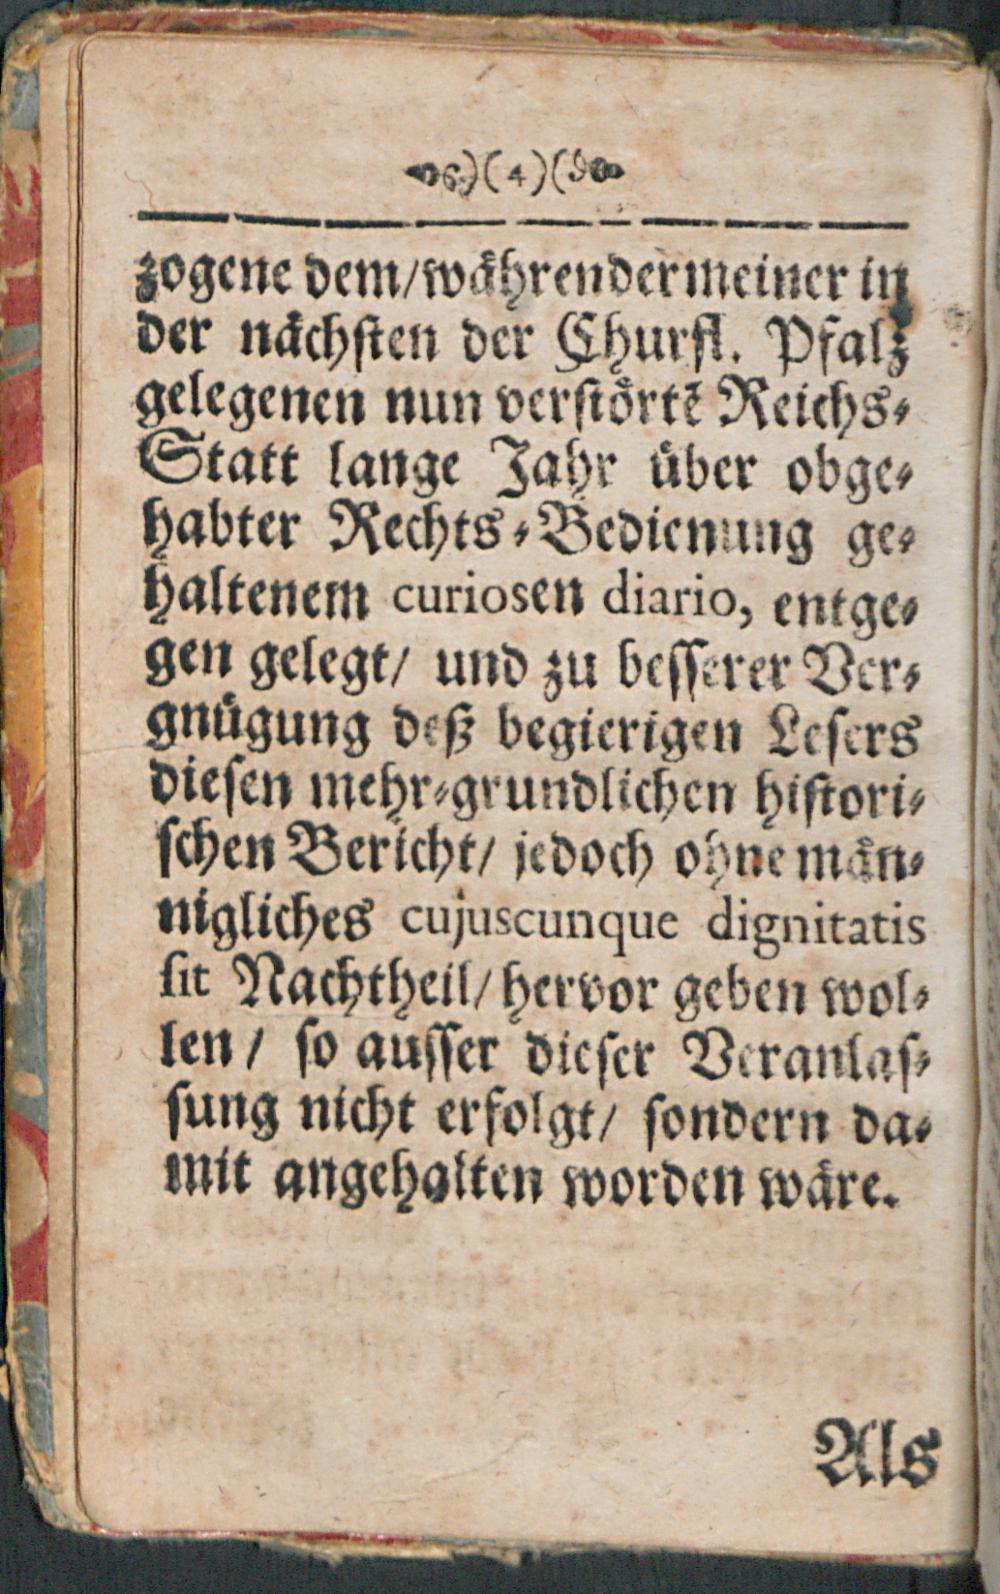 )( 4 )(
zogene dem/ währender meiner in
der nächsten der Churfl. Pfalz
gelegenen nun verstörtē Reichs-
Statt lange Jahr über obge-
habter Rechts-Bedienung ge-
haltenem curiosen diario, entge-
gen gelegt/ und zu besserer Ver-
gnügung deß begierigen Lesers
diesen mehr-grundlichen histori-
schen Bericht/ jedoch ohne män-
nigliches cujuscunque dignitatis
sit Nachtheil/ hervor geben wol-
len/ so ausser dieser Veranlas-
sung nicht erfolgt/ sondern da-
mit angehalten worden wäre.
Als